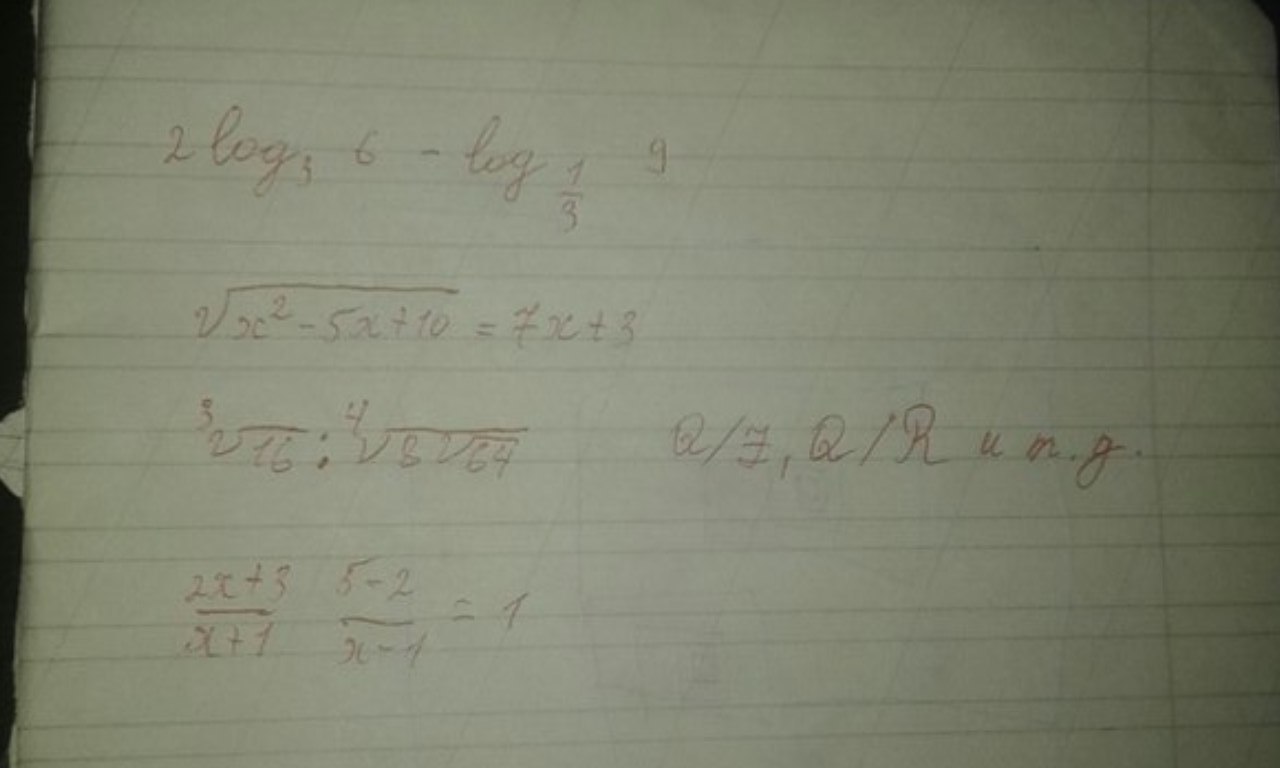 2 log₃ 6 - log_{1/3} 9
√(x² - 5x + 10) = 7x + 3
∛16 : ∜(8√64) Q/Z, Q/R и т.д.
(2x+3)/(x+1) (5-2)/(x-1) = 1